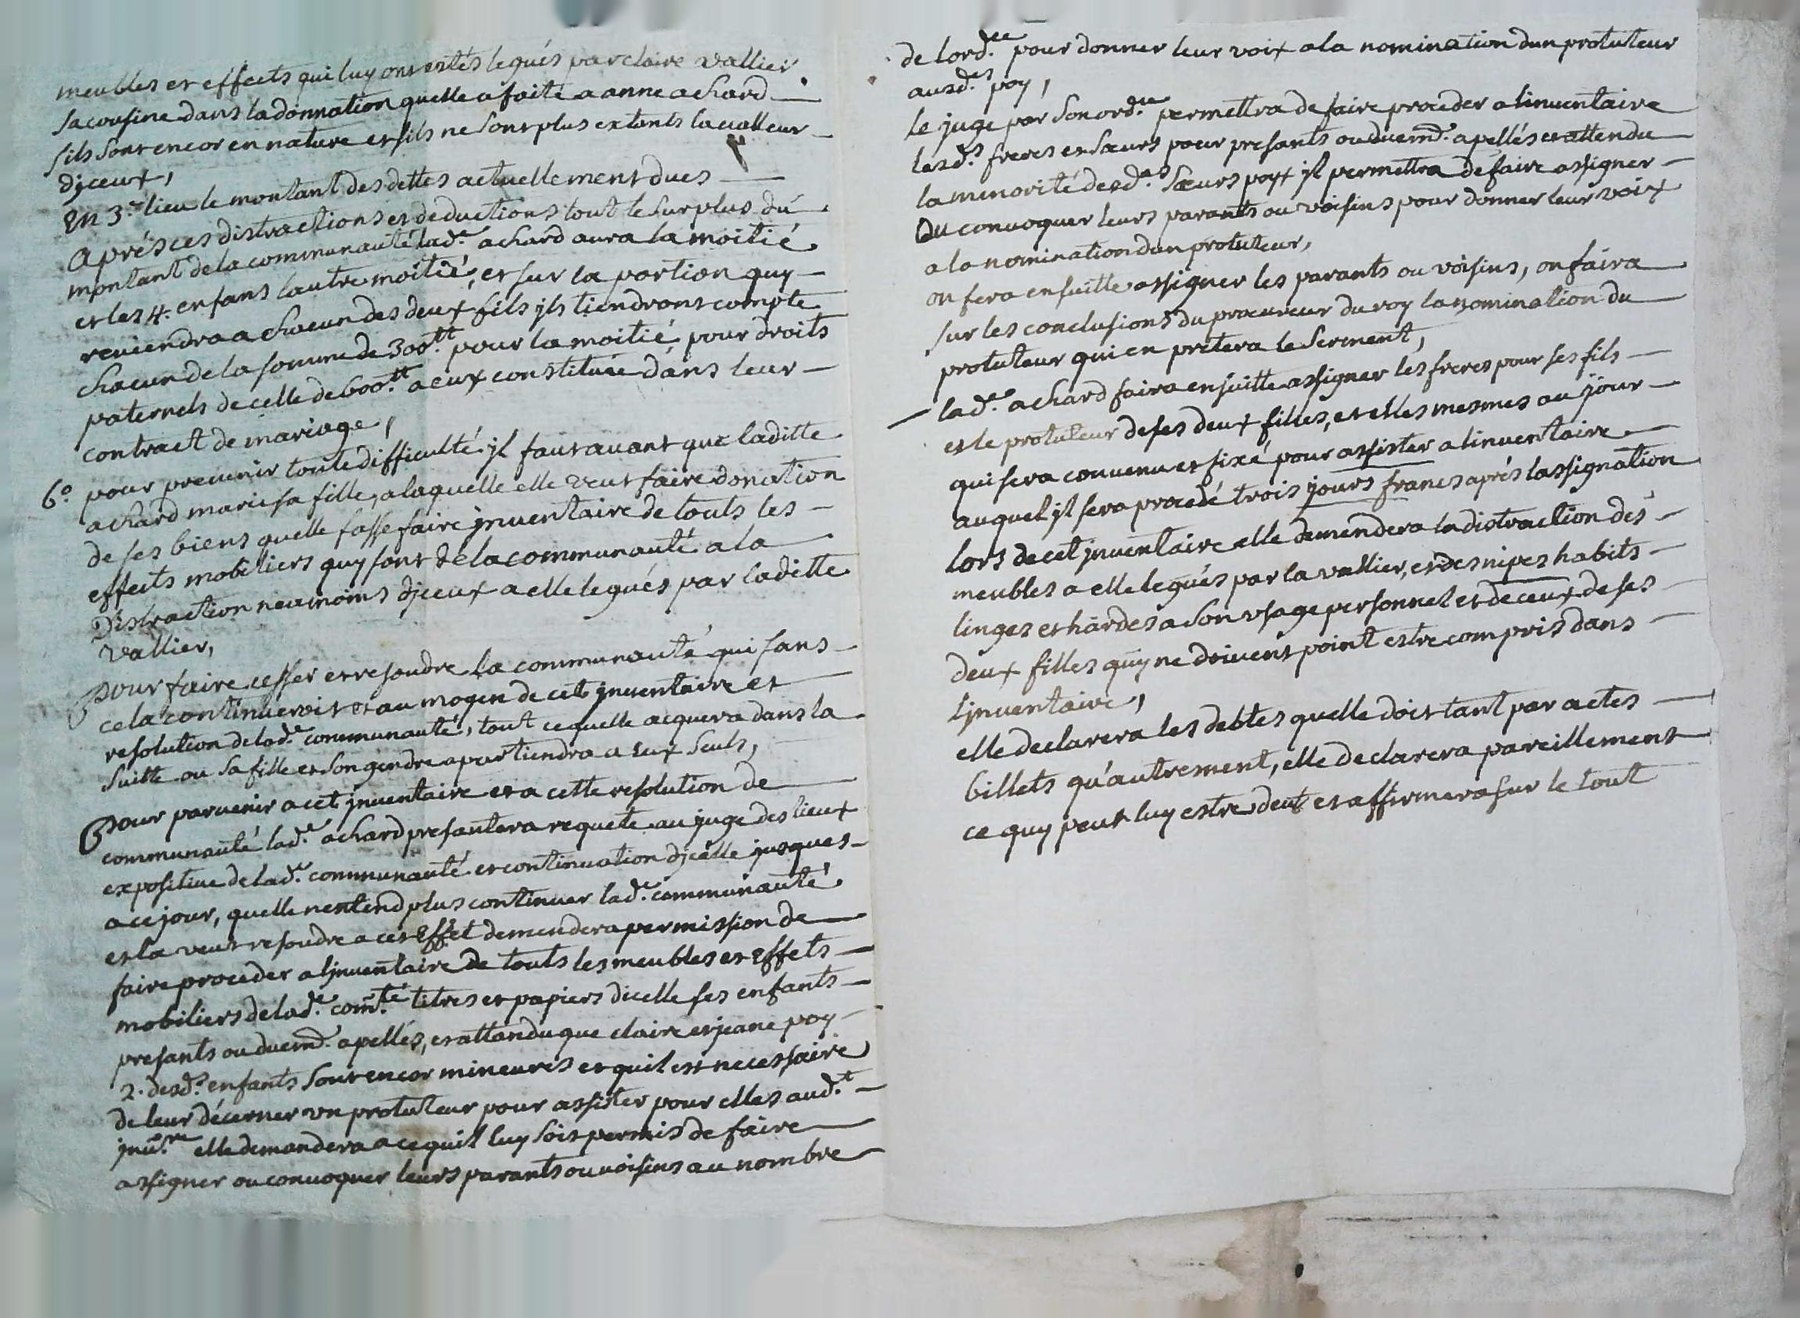 meubles et effects qui luy ont estés legués par claire vallier
sa cousine dans la donnation quelle a faite a anne achard
sils sont encor en nature et sils ne sont plus extants la valleur
djceux,
En 3.e lieu le montant des dettes actuellement dues
aprés ces distractions et deductions tout le surplus du
montant de la communauté lad.e achard aura la moitié
et les 4. enfans lautre moitié, et sur la portion quy
reviendra a chacun des deux fils jls tiendront compte
chacun de la somme de 300.tt pour la moitié pour droits
paternels de celle de 600.tt a eux constituée dans leur
contract de mariage,
6.o pour prevenir toute difficulté jl faut avant que laditte
achard marie sa fille, a laquelle elle veut faire donation
de ses biens quelle fasse faire jnventaire de touts les
effects mobiliers quy sont de la communauté a la
Distraction neanmoins djceux a elle legués par laditte
vallier,
pour faire cesser et resoudre la communauté qui sans
cela continueroit et au moyen de cet jnventaire et
resolution de lad.e communauté, tout ce quelle acquera dans la
suitte ou sa fille et son gendre apartiendra a eux seuls,
pour parvenir a cet jnventaire et a cette resolution de
communauté lad.e achard presantera requete au juge des lieux
expositive de lad.e communauté et continuation djcelle jusques
a ce jour, quelle nentend plus continuer lad.e communauté
et la veut resoudre a cet effet demendera permission de
faire proceder a ljnventaire de touts les meubles et effets
mobiliers de lad.e com.té titres et papiers dicelle ses enfants
presants ou duem.t apellés, et attandu que claire et jeane poy
2. desd.s enfants sont encor mineures et quil est necessaire
de leur décerner vn protuteur pour assister pour elles aud.t
jnv.re elle demandera a ce quil luy soit permis de faire
assigner ou convoquer leurs parants ou voisins au nombre
de lord.ce pour donner leur voix a la nomination dun protuteur
ausd.es poy,
Le juge par son ord.ce permettra de faire proceder a linventaire
lesd.s freres et sœurs pour presants ou duem.t apellés et attendu
la minorité desd.es sœurs poyx jl permettra de faire assigner
Ou convoquer leurs parants ou voisins pour donner leur voix
a la nomination dun protuteur,
on fera ensuitte assigner les parants ou voisins, on faira
sur les conclusions du procureur du roy la nomination du
protuteur qui en prètera le serment,
lad.e achard faira ensuitte assigner les freres pour ses fils
et le protuteur de ses deux filles, et elles mesmes au jour
qui sera convenu et fixé pour assister a linventaire
auquel jl sera procedé trois jours francs aprés lassignation
lors de cet jnventaire elle demendera la distraction des
meubles a elle legués par la vallier, et des nipes habits
linges et hardes a son vsage personnel et de ceux de ses
deux filles quy ne doivent point estre compris dans
ljnventaire,
elle declarera les debtes quelle doit tant par actes
billets qu'autrement, elle declarera pareillement
ce quy peut luy estre deut et affirmera sur le tout